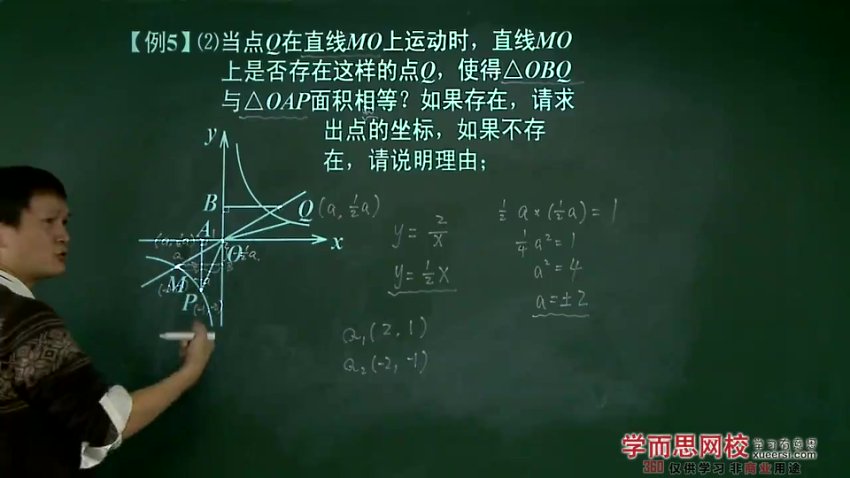 【例5】⑵当点Q在直线MO上运动时，直线MO
上是否存在这样的点Q，使得△OBQ
与△OAP面积相等？如果存在，请求
出点的坐标，如果不存
在，请说明理由；
y
B
Q
(a, ½a)
A
O
x
M
P
y = 2/x
y = ½x
½ a × (½a) = 1
¼a² = 1
a² = 4
a = ±2
Q₁(2, 1)
Q₂(-2, -1)
学而思网校
学习有意思
xueersi.com
360 仅供学习 非商业用途